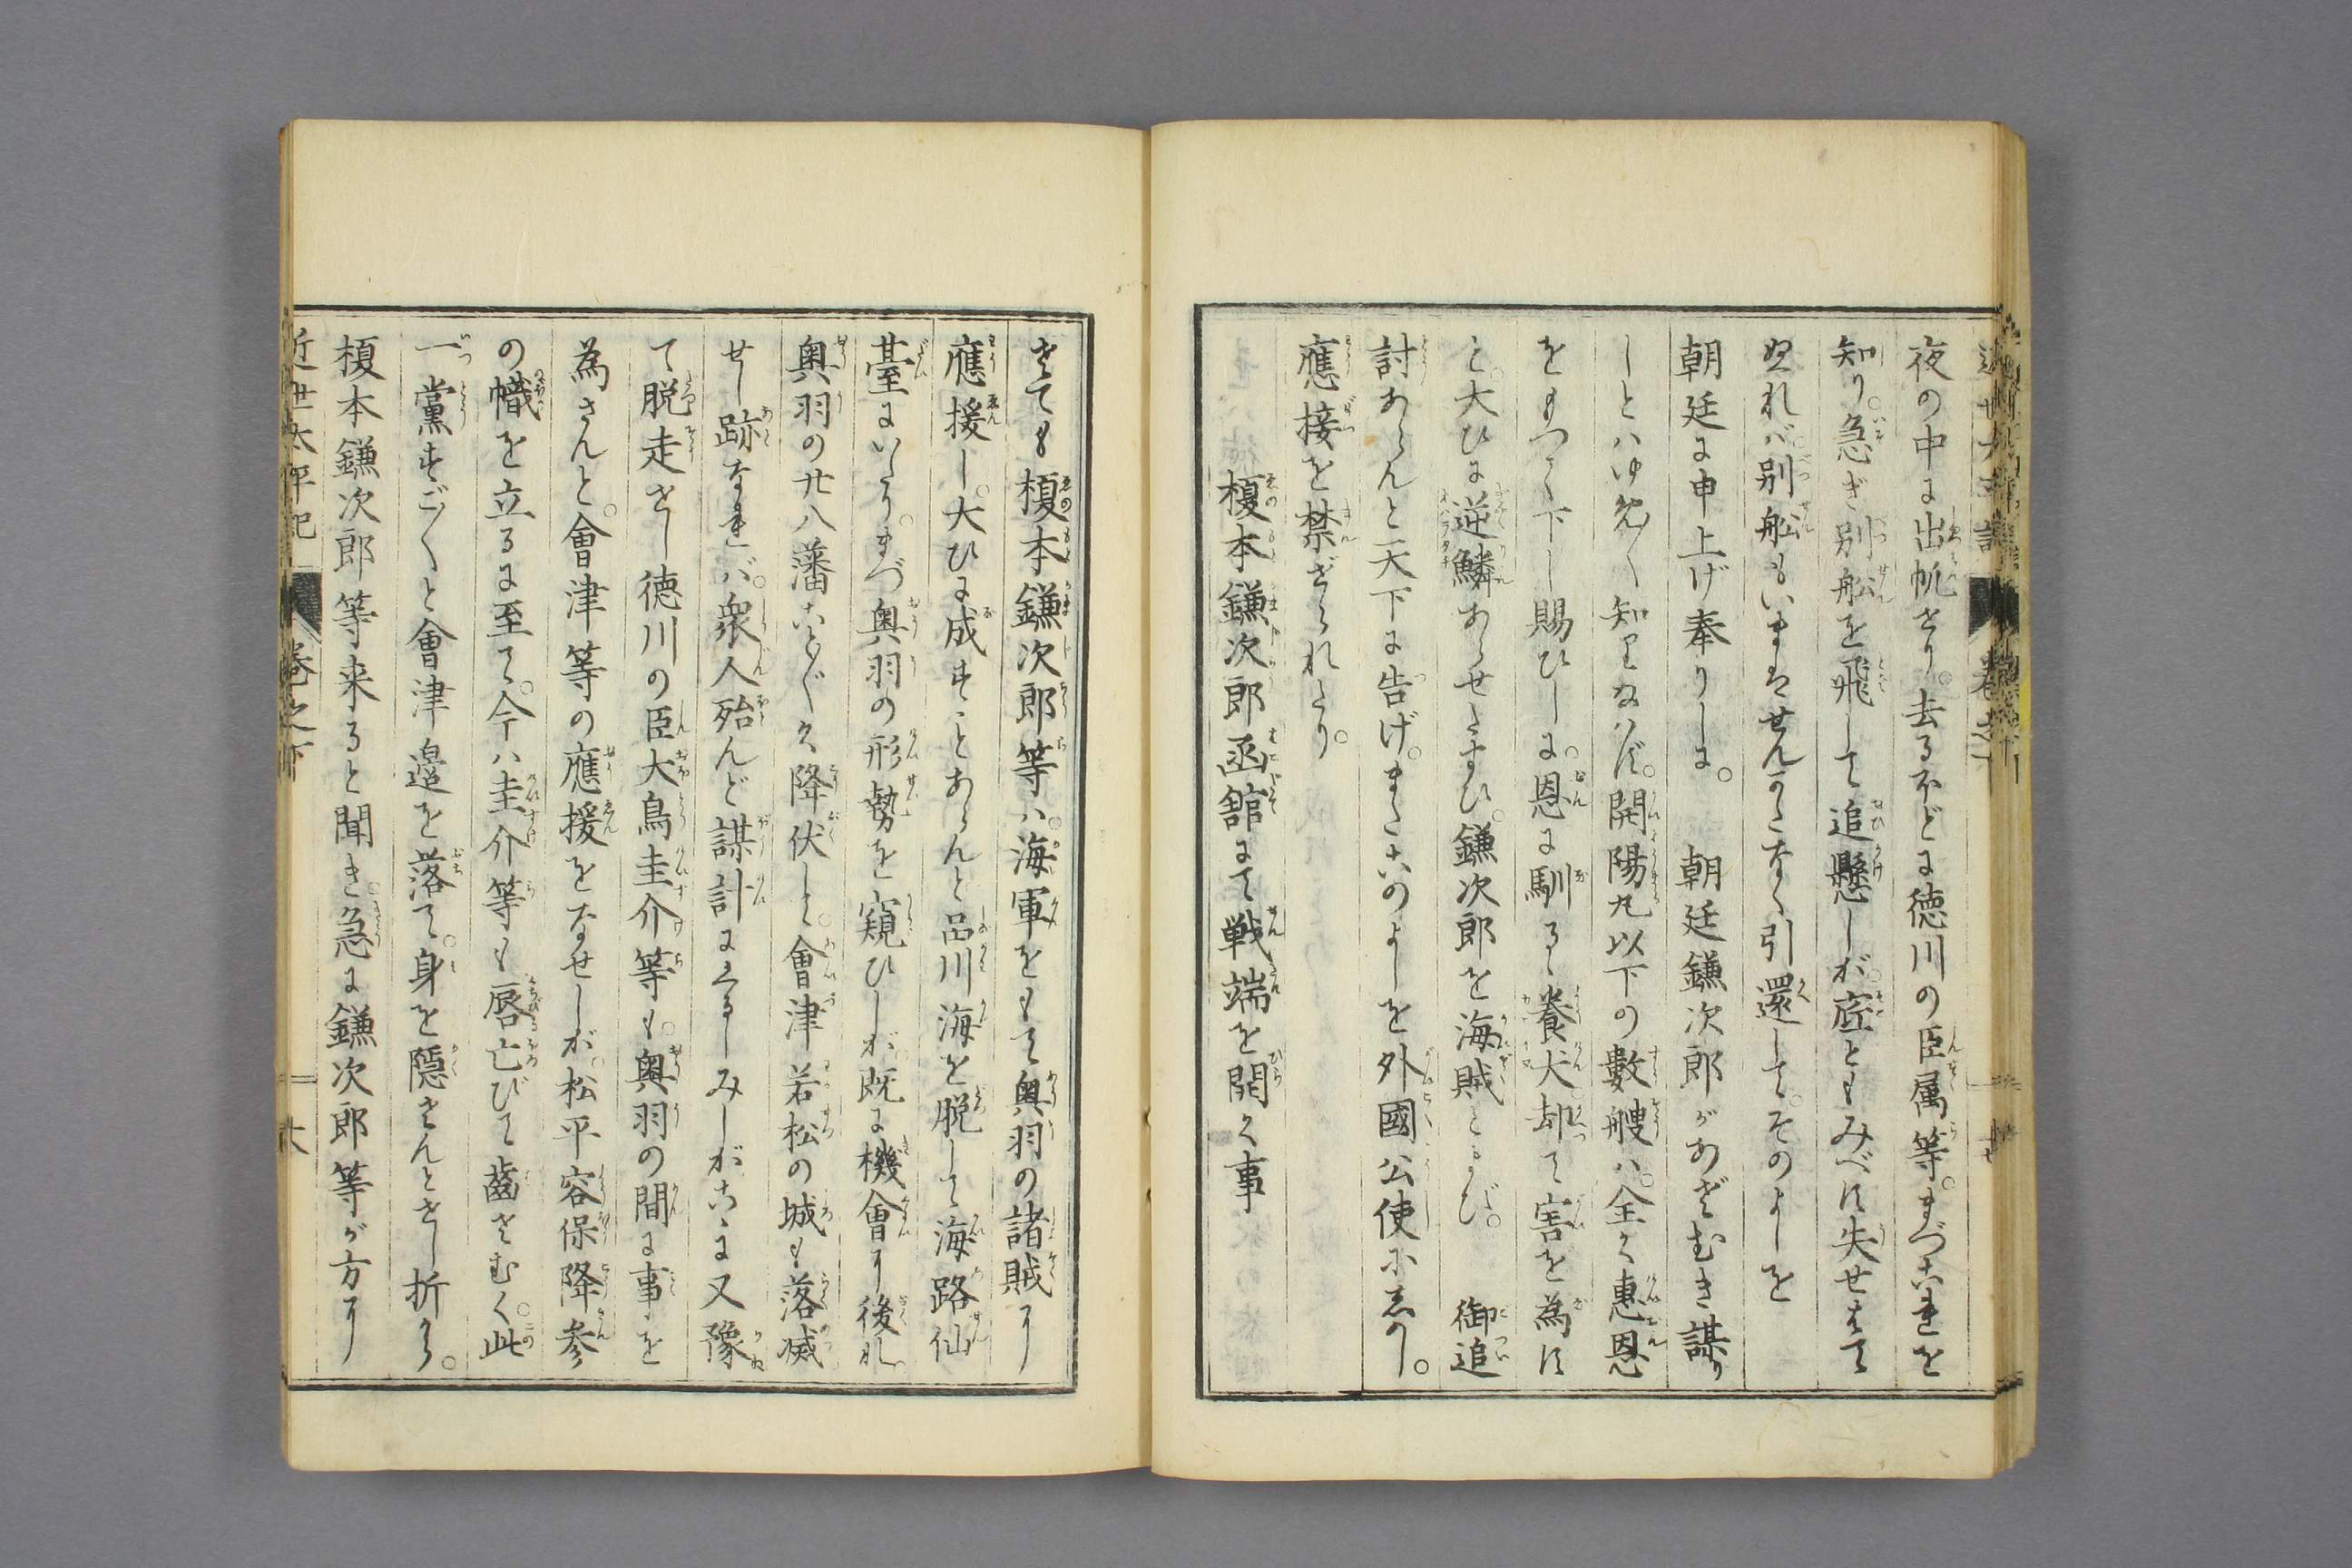 夜の中に出帆せり。去るほどに徳川の臣属等。まづこれを
知り。急ぎ別船を飛して追懸しが。底ともみべず失せはて
ぬれバ。別船もいまはせんかたなく引還して。そのよしを
朝廷に申上げ奉りしに。　朝廷鎌次郎があざむき謀り
しとハゆめ〳〵知りたまハず。開陽丸以下の數艘ハ。全く惠恩
をもつて下し賜ひしに。恩に馴るゝ養犬。却て害を為す
と。大ひに逆鱗あらせたまひ。鎌次郎を海賊とよび。　御追
討あらんと天下に告げ。またこのよしを外國公使にしめし。
應接を禁ぜられたり。
榎本鎌次郎函舘にて戦端を開く事
さても榎本鎌次郎等ハ。海軍をもて奥羽の諸賊に
應援し。大ひに成すことあらんと品川海を脱して海路仙
臺にいたり。まづ奥羽の形勢を窺ひしが。既に機會に後れ
奥羽の廿八藩こと〴〵く降伏し。會津若松の城も落滅
せし跡なれバ。衆人殆んど謀計にくるしみしがこゝに又豫
て脱走せし徳川の臣大鳥圭介等も。奥羽の間に事を
為さんと。會津等の應援をなせしが。松平容保降参
の幟を立るに至て。今ハ圭介等も唇亡びて齒さむく。此
一黨すご〳〵と會津邉を落て。身を隠さんとせし折から。
榎本鎌次郎等来ると聞き。急に鎌次郎等が方に
近世太平記　巻之下